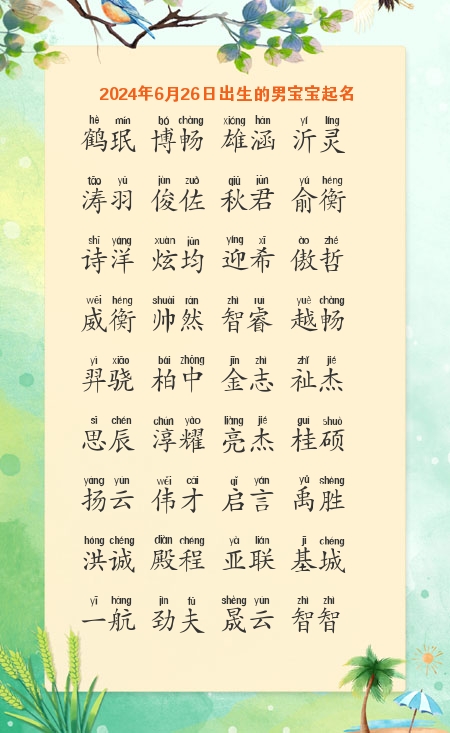 2024年6月26日出生的男宝宝起名
hè mín bó chàng xióng hán yí líng
鹤珉 博畅 雄涵 沂灵
tāo yǔ jùn zuǒ qiū jūn yú héng
涛羽 俊佐 秋君 俞衡
shī yáng xuàn jūn yíng xī ào zhé
诗洋 炫均 迎希 傲哲
wēi héng shuài rán zhì ruì yuè chàng
威衡 帅然 智睿 越畅
yì xiāo bǎi zhōng jīn zhì zhǐ jié
羿骁 柏中 金志 祉杰
sī chén chún yào liàng jié guì shuò
思辰 淳耀 亮杰 桂硕
yáng yún wěi cái qǐ yán yǔ shèng
扬云 伟才 启言 禹胜
hóng chéng diàn chéng yà lián jī chéng
洪诚 殿程 亚联 基城
yī háng jìn fū shèng yún zhì zhì
一航 劲夫 晟云 智智